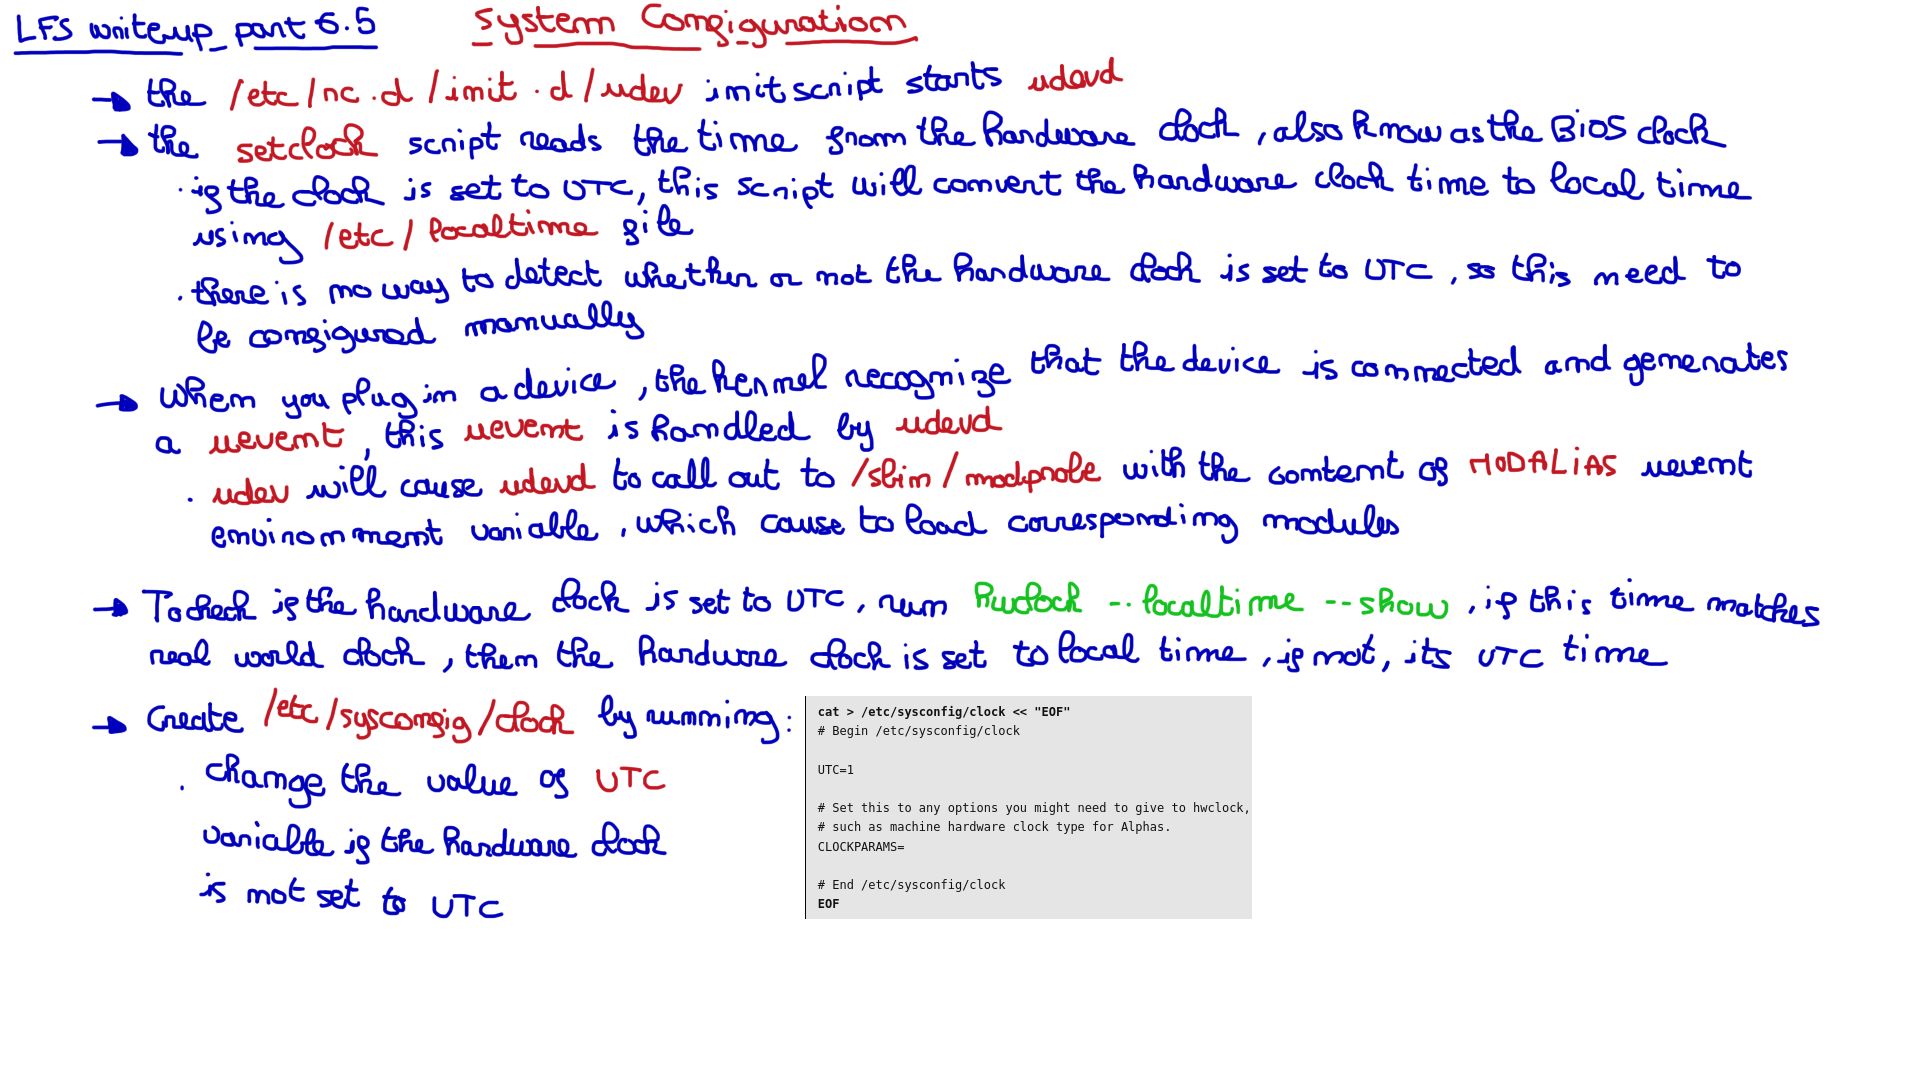 LFS writeup part 6.5 System Configuration
→ the /etc/rc.d/init.d/udev initscript starts udevd
→ the setclock script reads the time from the hardware clock, also know as the BIOS clock
· if the clock is set to UTC, this script will convert the hardware clock time to local time
using /etc/localtime file
· there is no way to detect whether or not the hardware clock is set to UTC, so this need to
be configured manually
→ When you plug in a device, the kernel recognize that the device is connected and generates
a uevent, this uevent is handled by udevd
· udev will cause udevd to call out to /sbin/modprobe with the content of MODALIAS uevent
environment variable, which cause to load corresponding modules
→ To check if the hardware clock is set to UTC, run hwclock --localtime --show, if this time matches
real world clock, then the hardware clock is set to local time, if not, its UTC time
→ Create /etc/sysconfig/clock by running:
· change the value of UTC
variable if the hardware clock
is not set to UTC
cat > /etc/sysconfig/clock << "EOF"
# Begin /etc/sysconfig/clock
UTC=1
# Set this to any options you might need to give to hwclock,
# such as machine hardware clock type for Alphas.
CLOCKPARAMS=
# End /etc/sysconfig/clock
EOF